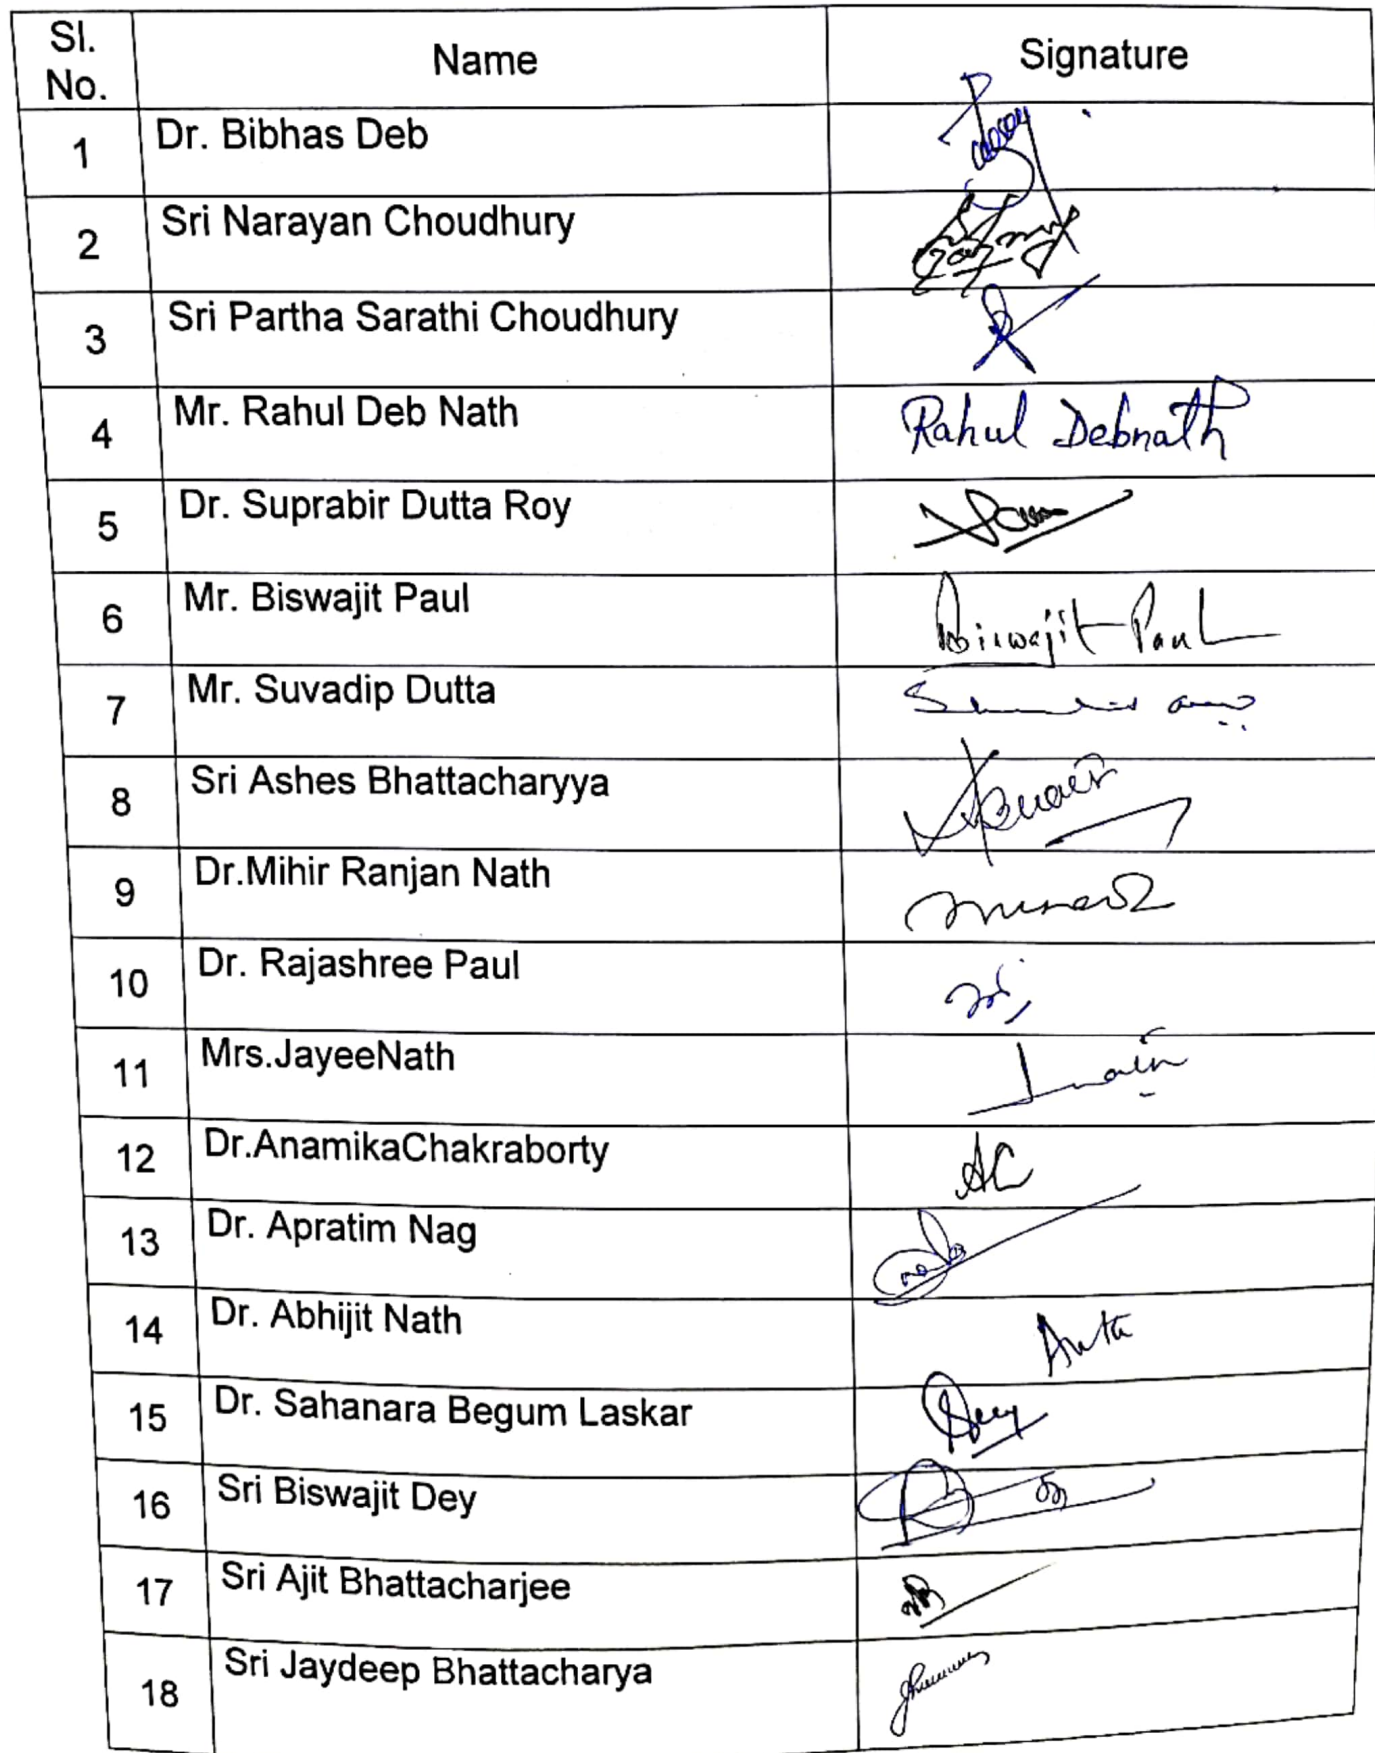 Sl. No. Name Signature
1 Dr. Bibhas Deb
2 Sri Narayan Choudhury
3 Sri Partha Sarathi Choudhury
4 Mr. Rahul Deb Nath Rahul Debnath
5 Dr. Suprabir Dutta Roy
6 Mr. Biswajit Paul Biswajit Paul
7 Mr. Suvadip Dutta
8 Sri Ashes Bhattacharyya
9 Dr.Mihir Ranjan Nath
10 Dr. Rajashree Paul
11 Mrs.JayeeNath
12 Dr.AnamikaChakraborty AC
13 Dr. Apratim Nag
14 Dr. Abhijit Nath
15 Dr. Sahanara Begum Laskar
16 Sri Biswajit Dey
17 Sri Ajit Bhattacharjee
18 Sri Jaydeep Bhattacharya